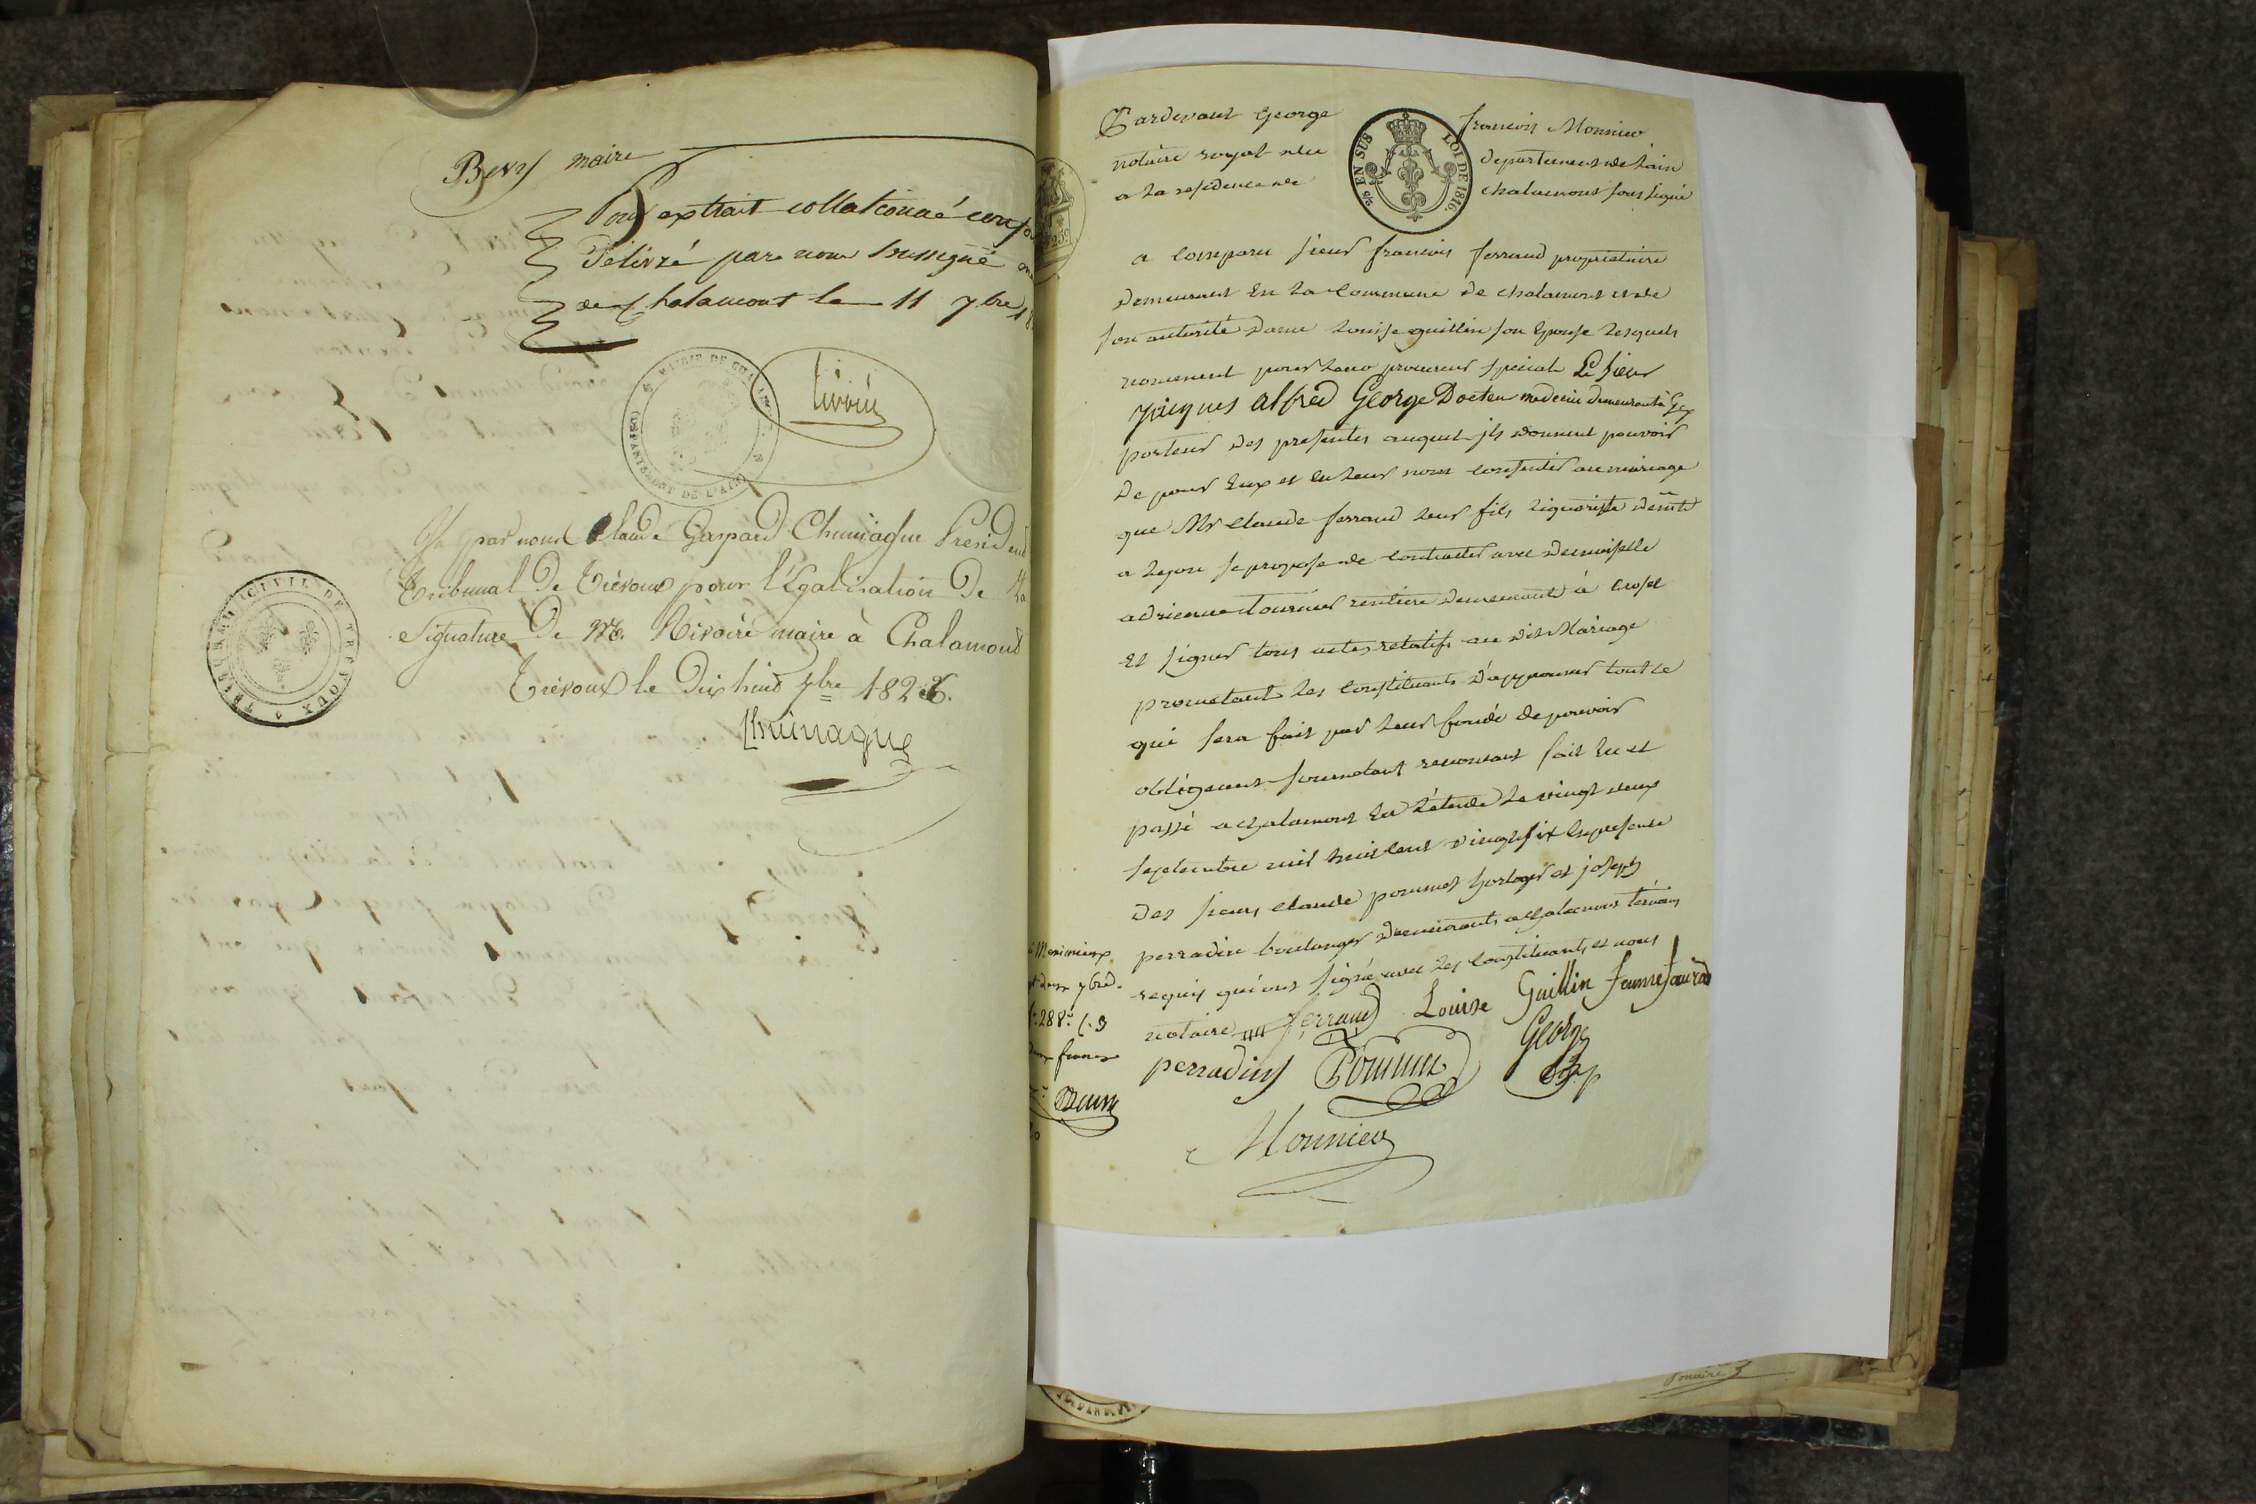 Bevy maire
Pour extrait collationné
Délivré par nous soussigné
de Chalamont le 11 7bre
MAIRIE DE
DEPARTEMENT DE L'AIN
par nous Claude Gaspard Chuinague President
Tribunal de Trévoux pour l'égalisation de la
signature de Mr. Rivoire maire à Chalamont
Trévoux le dix huit 7bre 1826.
TRIBUNAL CIVIL DE TREVOUX
Chuinague
Pardevant George françois Monnier
notaire royal du departement de l'ain
a la residence de chalamont soussigné
EN SUS LOI DE 1816.
a comparu sieur françois ferraud proprietaire
demeurant en la commune de chalamont et de
son autorité dame Louise guillin son Epouse lesquels
nomment pour leur procureur special Le sieur
Jacques alfred George Docteur medecin demeurant à Gex
porteur des presentes auquel ils donnent pouvoir
de pour Eux et en leur nom consentir au mariage
que Mr claude ferraud leur fils liquoriste demt
a Lyon se propose de contracter avec demoiselle
adrienne tournier rentiere demeurant à crozet
Et signer tous actes relatifs au dit Mariage
promettant les constituants d'approuver tout ce
qui sera fait par leur fondé de pouvoir
obligeant soumettant renonçant fait lu et
passé a chalamont en l'étude le vingt deux
septembre mil huit cent vingt six en presence
des sieurs claude pommet horloger et joseph
perradin boulanger demeurants a chalamont témoins
requis qui ont signé avec les constituants et nous
notaire ferraud Louise Guillin femme faurad
perradin Pommet George
Monnier
Meximieux
7bre
francs